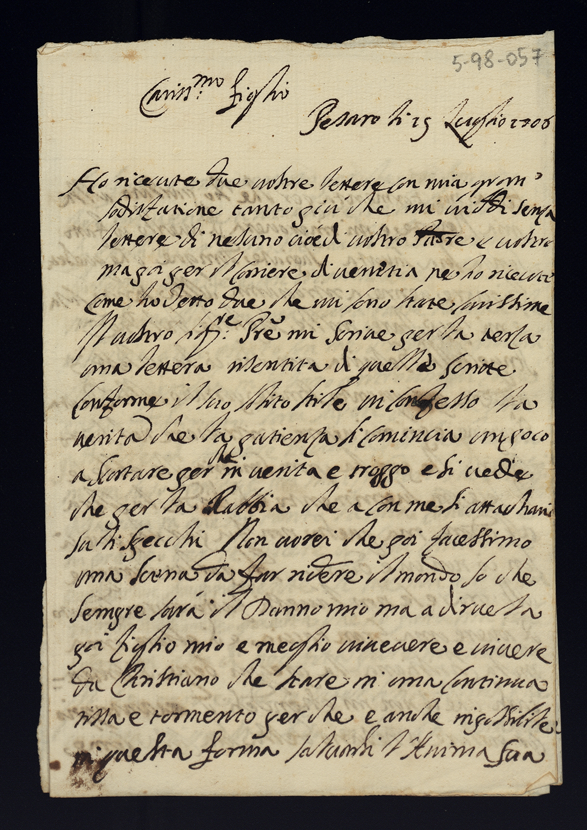 5-98-057
Cariss.mo figlio
Pesaro li 15 Luglio 1706
Ho riceute due vostre lettere con mia gran
sodisfatione tanto più che mi viddi senza
lettere di nesuno cioe di vostro Padre e vostro
ma poi per il coriere di venetia ne ho riceute
come ho detto due che mi sono state carissime
Il vostro Pre mi scrive per la terza
una lettera risentita di quelle scritte
conforme il suo solito stile vi confesso la
verita che la patienza si comincia un poco
a scortare per in verita e troppo e si vede
che per la Rabbia che a con me si attachari
sa li specchi Non vorei che poi facessimo
una scena da far ridere il mondo so che
sempre sarà il Danno mio ma a dirvela
poi figlio mio e meglio vivere e vivere
da Christiano che stare in una continua
rissa e tormento per che e anche inposibile
in questa forma salvarsi l'Anima sua